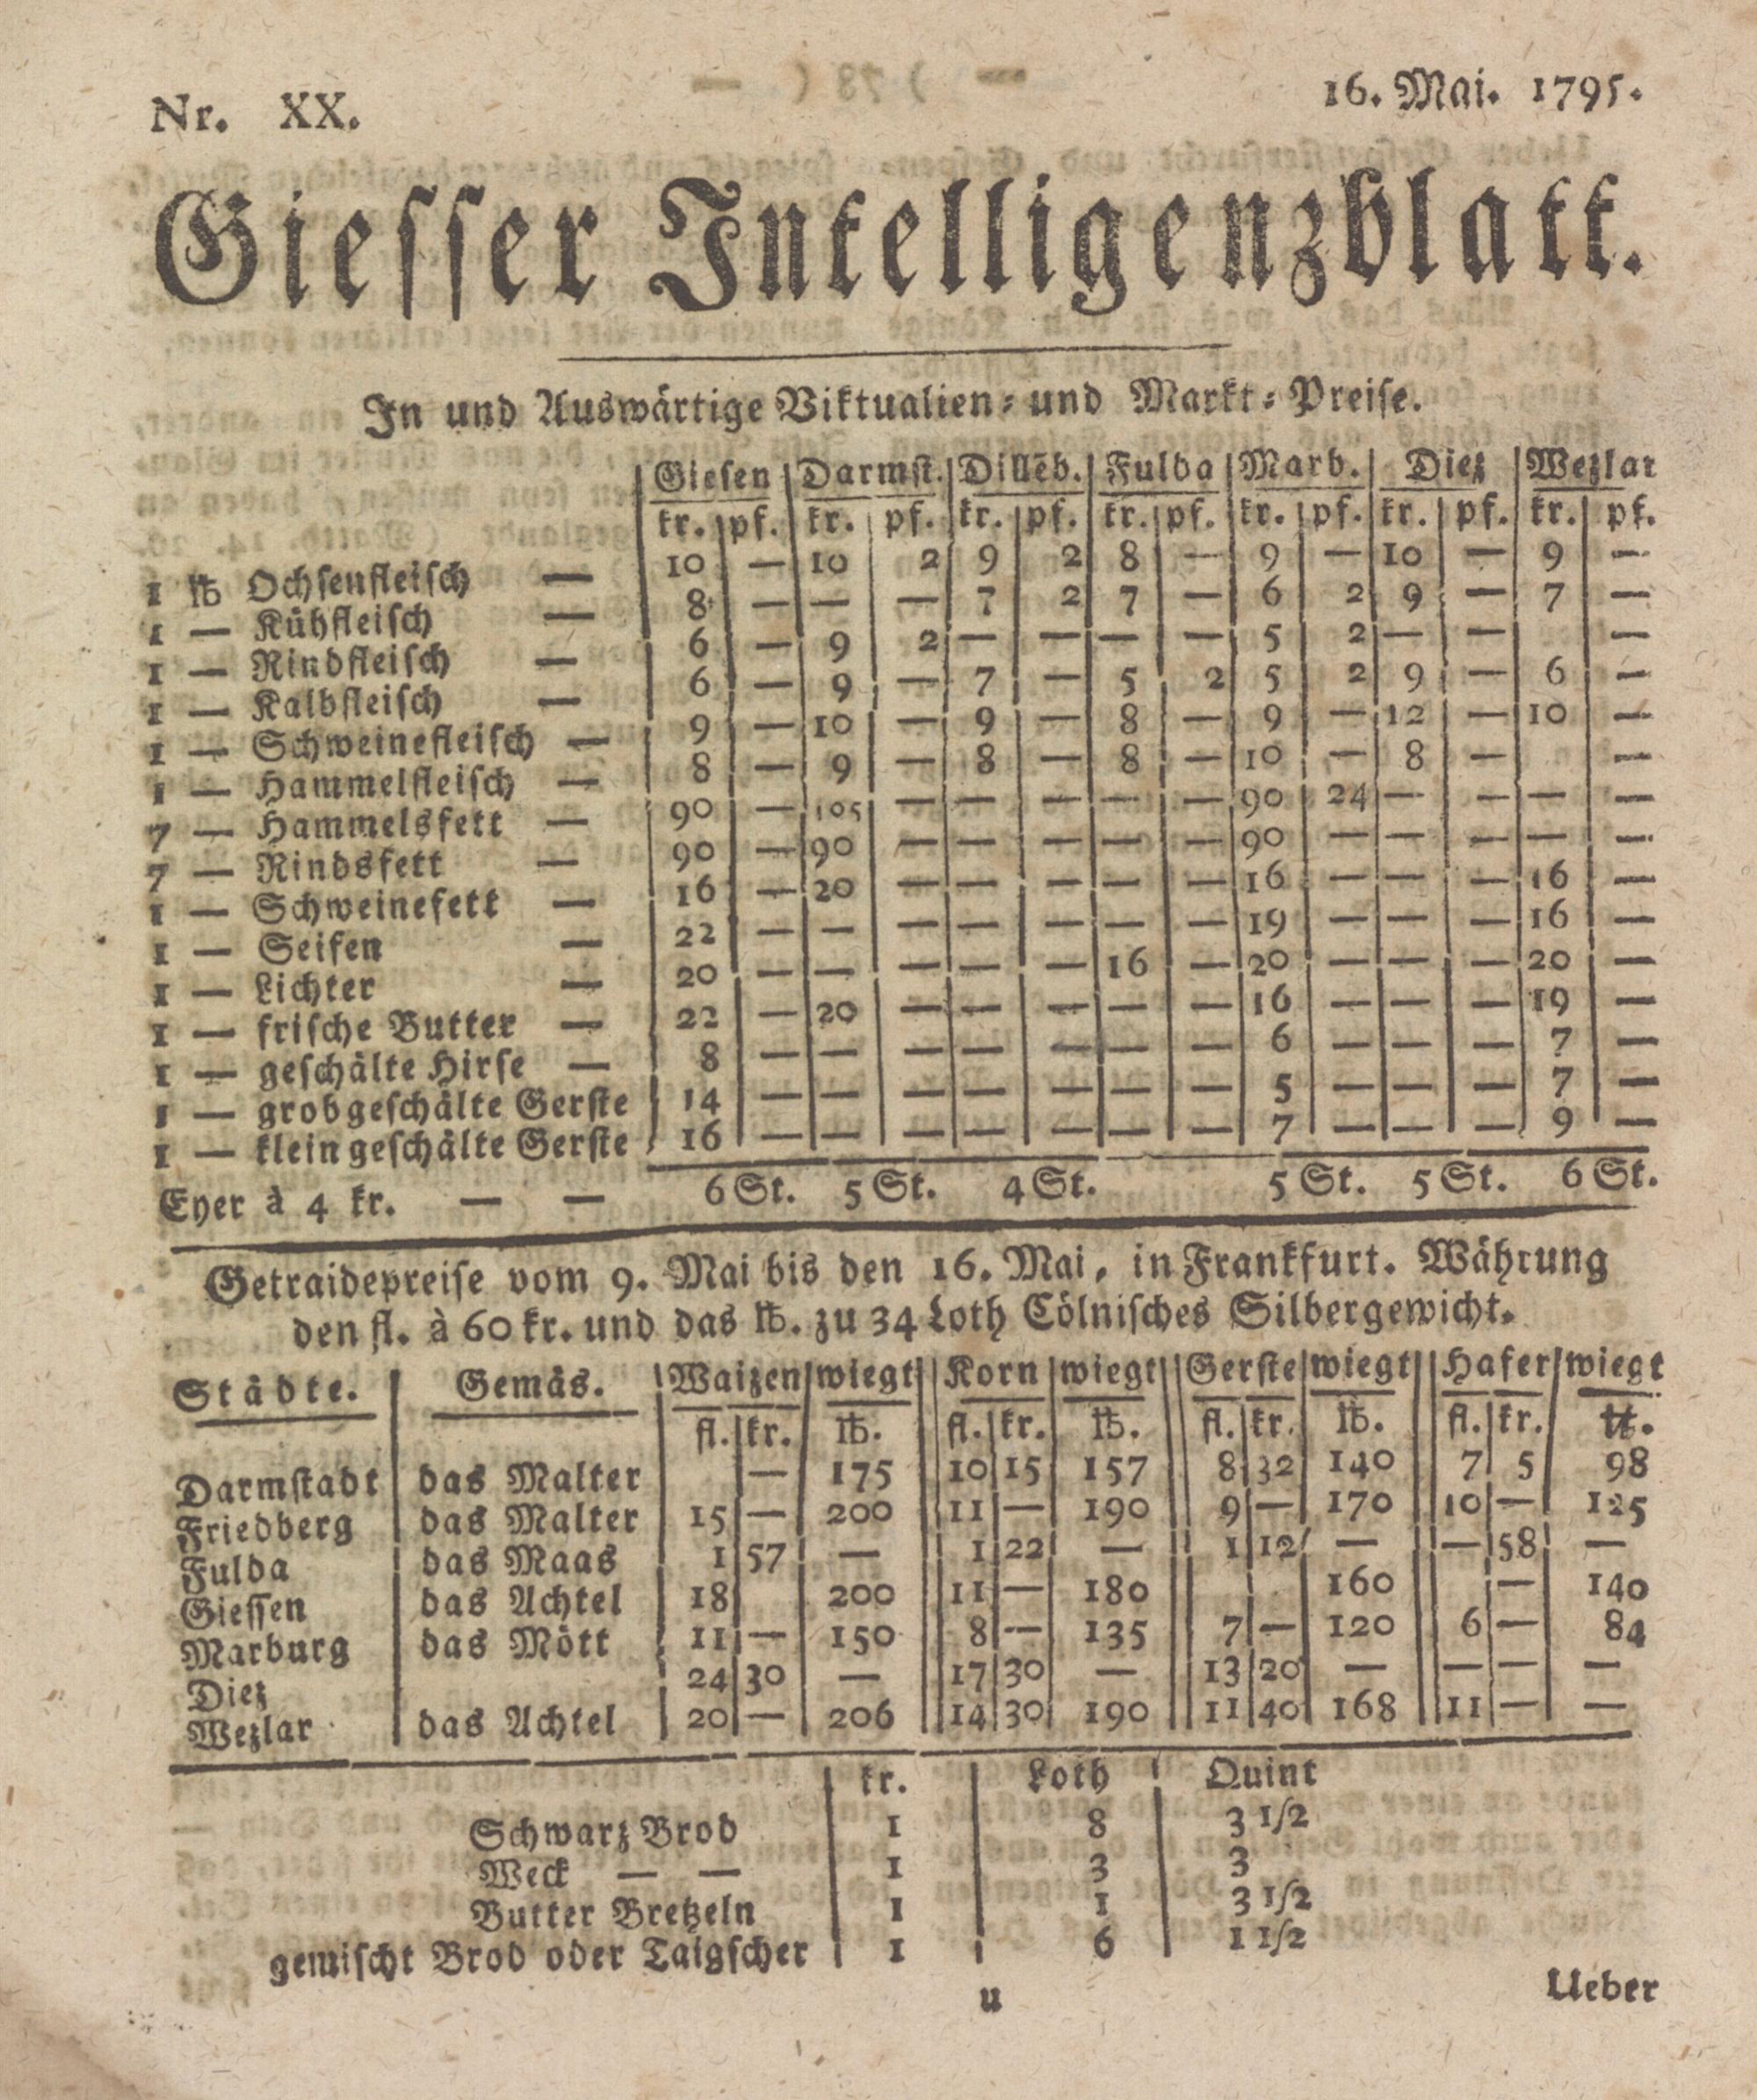 Nr. XX.
16. Mai. 1795.
Giesser Intelligenzblatt.
In und Auswärtige Viktualien- und Markt-Preise.
Giesen Darmst. Dillēb. Fulda Marb. Diez Wezlar
kr. pf. kr. pf. kr. pf. kr. pf. kr. pf. kr. pf. kr. pf.
1 ℔ Ochsenfleisch — 10 — 10 2 9 2 8 — 9 — 10 — 9 —
1 — Kühfleisch — 8 — — — 7 2 7 — 6 2 9 — 7 —
1 — Rindfleisch — 6 — 9 2 — — — — 5 2 — — —
1 — Kalbfleisch — 6 — 9 — 7 — 5 2 5 2 9 — 6 —
1 — Schweinefleisch — 9 — 10 — 9 — 8 — 9 — 12 — 10 —
1 — Hammelfleisch — 8 — 9 — 8 — 8 — 10 — 8 — —
7 — Hammelsfett — 90 — 105 — — — — — 90 24 — — — —
7 — Rindsfett — 90 — 90 — — — — — 90 — — — — —
1 — Schweinefett — 16 — 20 — — — — — 16 — — — 16 —
1 — Seifen — 22 — — — — — — — 19 — — — 16 —
1 — Lichter — 20 — — — — — 16 — 20 — — — 20 —
1 — frische Butter — 22 — 20 — — — — — 16 — — — 19 —
1 — geschälte Hirse — 8 — — — — — — — 6 — — — 7 —
1 — grobgeschälte Gerste 14 — — — — — — — 5 — — — 7 —
1 — klein geschälte Gerste 16 — — — — — — — 7 — — — 9 —
Eyer à 4 kr. — — 6 St. 5 St. 4 St. 5 St. 5 St. 6 St.
Getraidepreise vom 9. Mai bis den 16. Mai, in Frankfurt. Währung
den fl. à 60 kr. und das ℔. zu 34 Loth Cölnisches Silbergewicht.
Städte. Gemäs. Waizen wiegt Korn wiegt Gerste wiegt Hafer wiegt
fl. kr. ℔. fl. kr. ℔. fl. kr. ℔. fl. kr. ℔.
Darmstadt das Malter — 175 10 15 157 8 32 140 7 5 98
Friedberg das Malter 15 — 200 11 — 190 9 — 170 10 — 125
Fulda das Maas 1 57 — 1 22 — 1 12 — — 58 —
Giessen das Achtel 18 200 11 — 180 160 — 140
Marburg das Mött 11 — 150 8 — 135 7 — 120 6 — 84
Diez 24 30 — 17 30 — 13 20 — — — —
Wezlar das Achtel 20 — 206 14 30 190 11 40 168 11 — —
kr. Loth Quint
Schwarz Brod 1 8 3 1/2
Weck — — 1 3 3
Butter Bretzeln 1 1 3 1/2
gemischt Brod oder Taigscher 1 6 1 1/2
u
Ueber